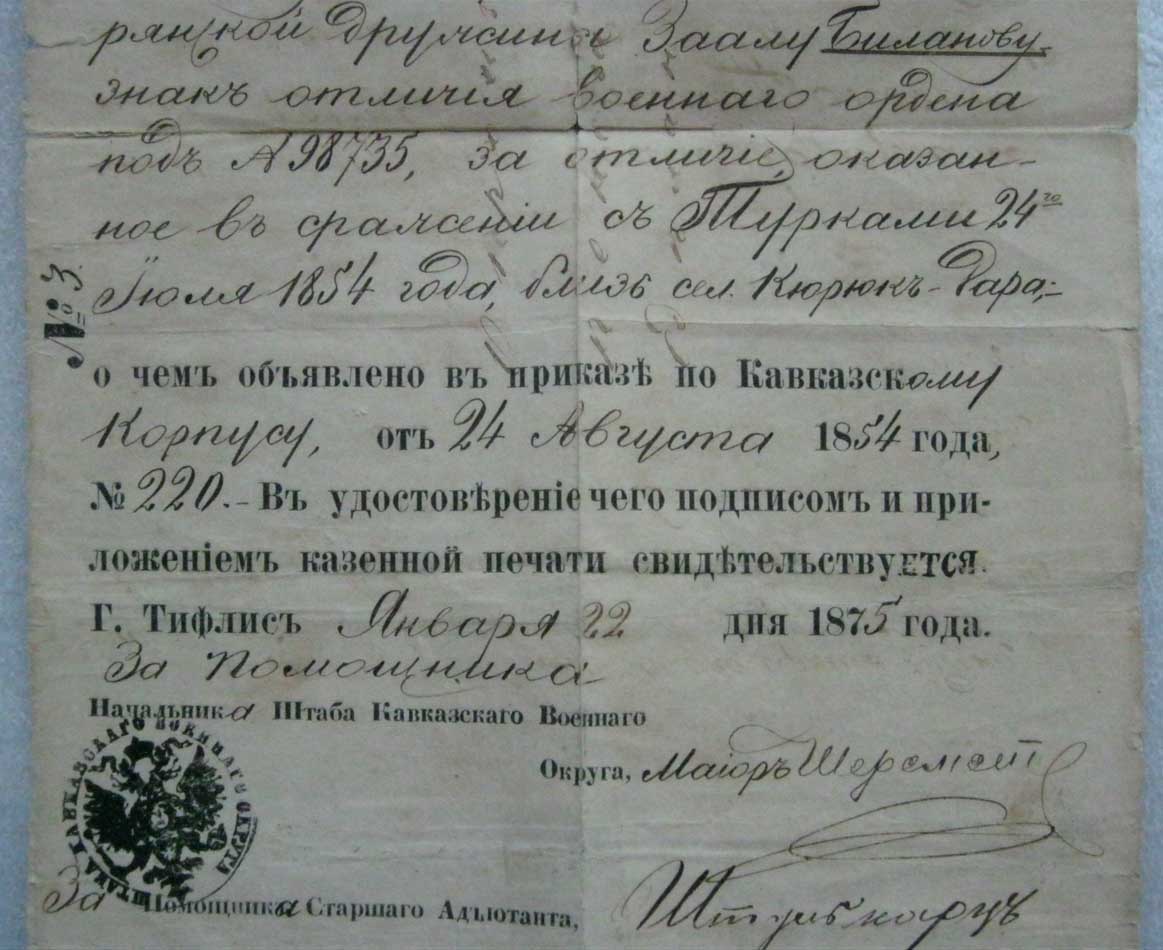 рянской дружины Заалу Биланову,
знакъ отличія военнаго ордена
подъ № 98735, за отличіе, оказан-
ное въ сраженіи съ Турками 24го
Іюля 1854 года, близъ сел. Кюрюкъ-Дара,-
№ 3.
о чемъ объявлено въ приказѣ по Кавказскому
Корпусу, отъ 24 Августа 1854 года,
№ 220.- Въ удостовѣреніе чего подписомъ и при-
ложеніемъ казенной печати свидѣтельствуется.
Г. Тифлисъ Января 22 дня 1875 года.
За Помощника
Начальника Штаба Кавказскаго Военнаго
Округа, Маіоръ Шеремет
ШТАБА КАВКАЗСКАГО ВОЕННАГО ОКРУГА
За Помощника Старшаго Адъютанта,